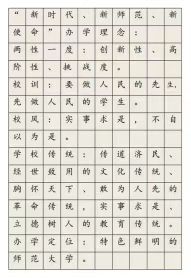 “新时代、新师范、新
使命”办学理念：
两性一度：创新性、高
阶性、挑战度。
校训：要做人民的先生，
先做人民的学生。
校风：实事求是，不自
以为是。
学校传统：传道济民、
经世致用的文化传统、
胸怀天下、敢为人先的
革命传统，实事求是、
立德树人的教育传统。
办学定位：特色鲜明的
师范大学。